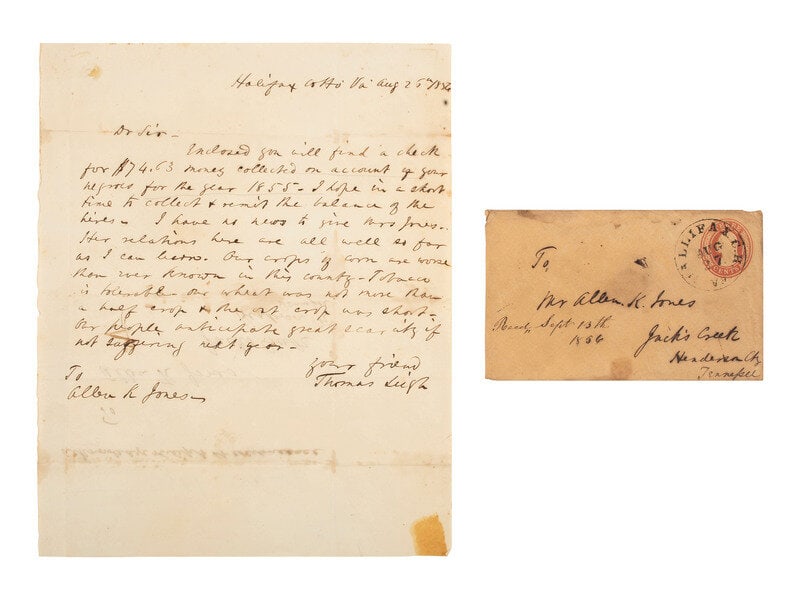 Halifax Co Ho Va Aug 25th 1856
Dr Sir -
Enclosed you will find a check
for $74.63 money collected on account of your
negroes for the year 1855 - I hope in a short
time to collect & remit the balance of the
hires - I have no news to give Mrs Jones -
Her relations here are all well as far
as I can learn. Our crops of corn are worse
than ever known in this county - Tobacco
is tolerable - our wheat was not more than
a half crop & the oat crop was short -
Our people anticipate great scarcity if
not suffering next year -
Your friend
Thomas Leigh
To
Allen K Jones
HALLIFAX C.H.
AUG
To,
Mr Allen K. Jones
Recd, Sept 13th
1856
Jack's Creek
Henderson Cty
Tennessee